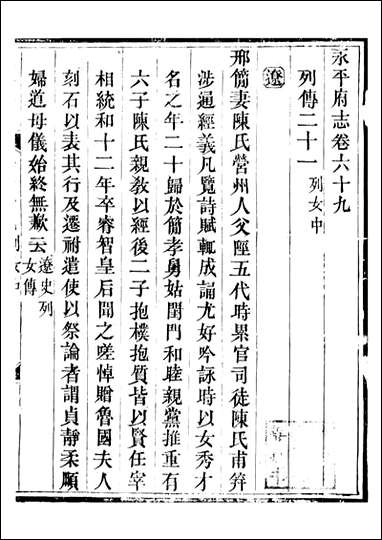 永平府志卷六十九
列傳二十一 列女中
遼
邢簡妻陳氏營州人父陘五代時累官司徒陳氏甫笄
涉通經義凡覽詩賦輒成誦尤好吟詠時以女秀才
名之年二十歸於簡孝舅姑閨門和睦親黨推重有
六子陳氏親教以經後二子抱樸抱質皆以賢任宰
相統和十二年卒睿智皇后聞之嗟悼贈魯國夫人
刻石以表其行及遷祔遣使以祭論者謂貞靜柔順
婦道母儀始終無歉云 遼史列
女傳